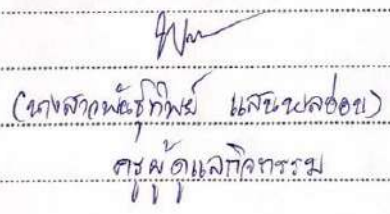 (นางสาวพันธุ์ทิพย์ แสนพลอ่อน)
ครูผู้ดูแลกิจกรรม